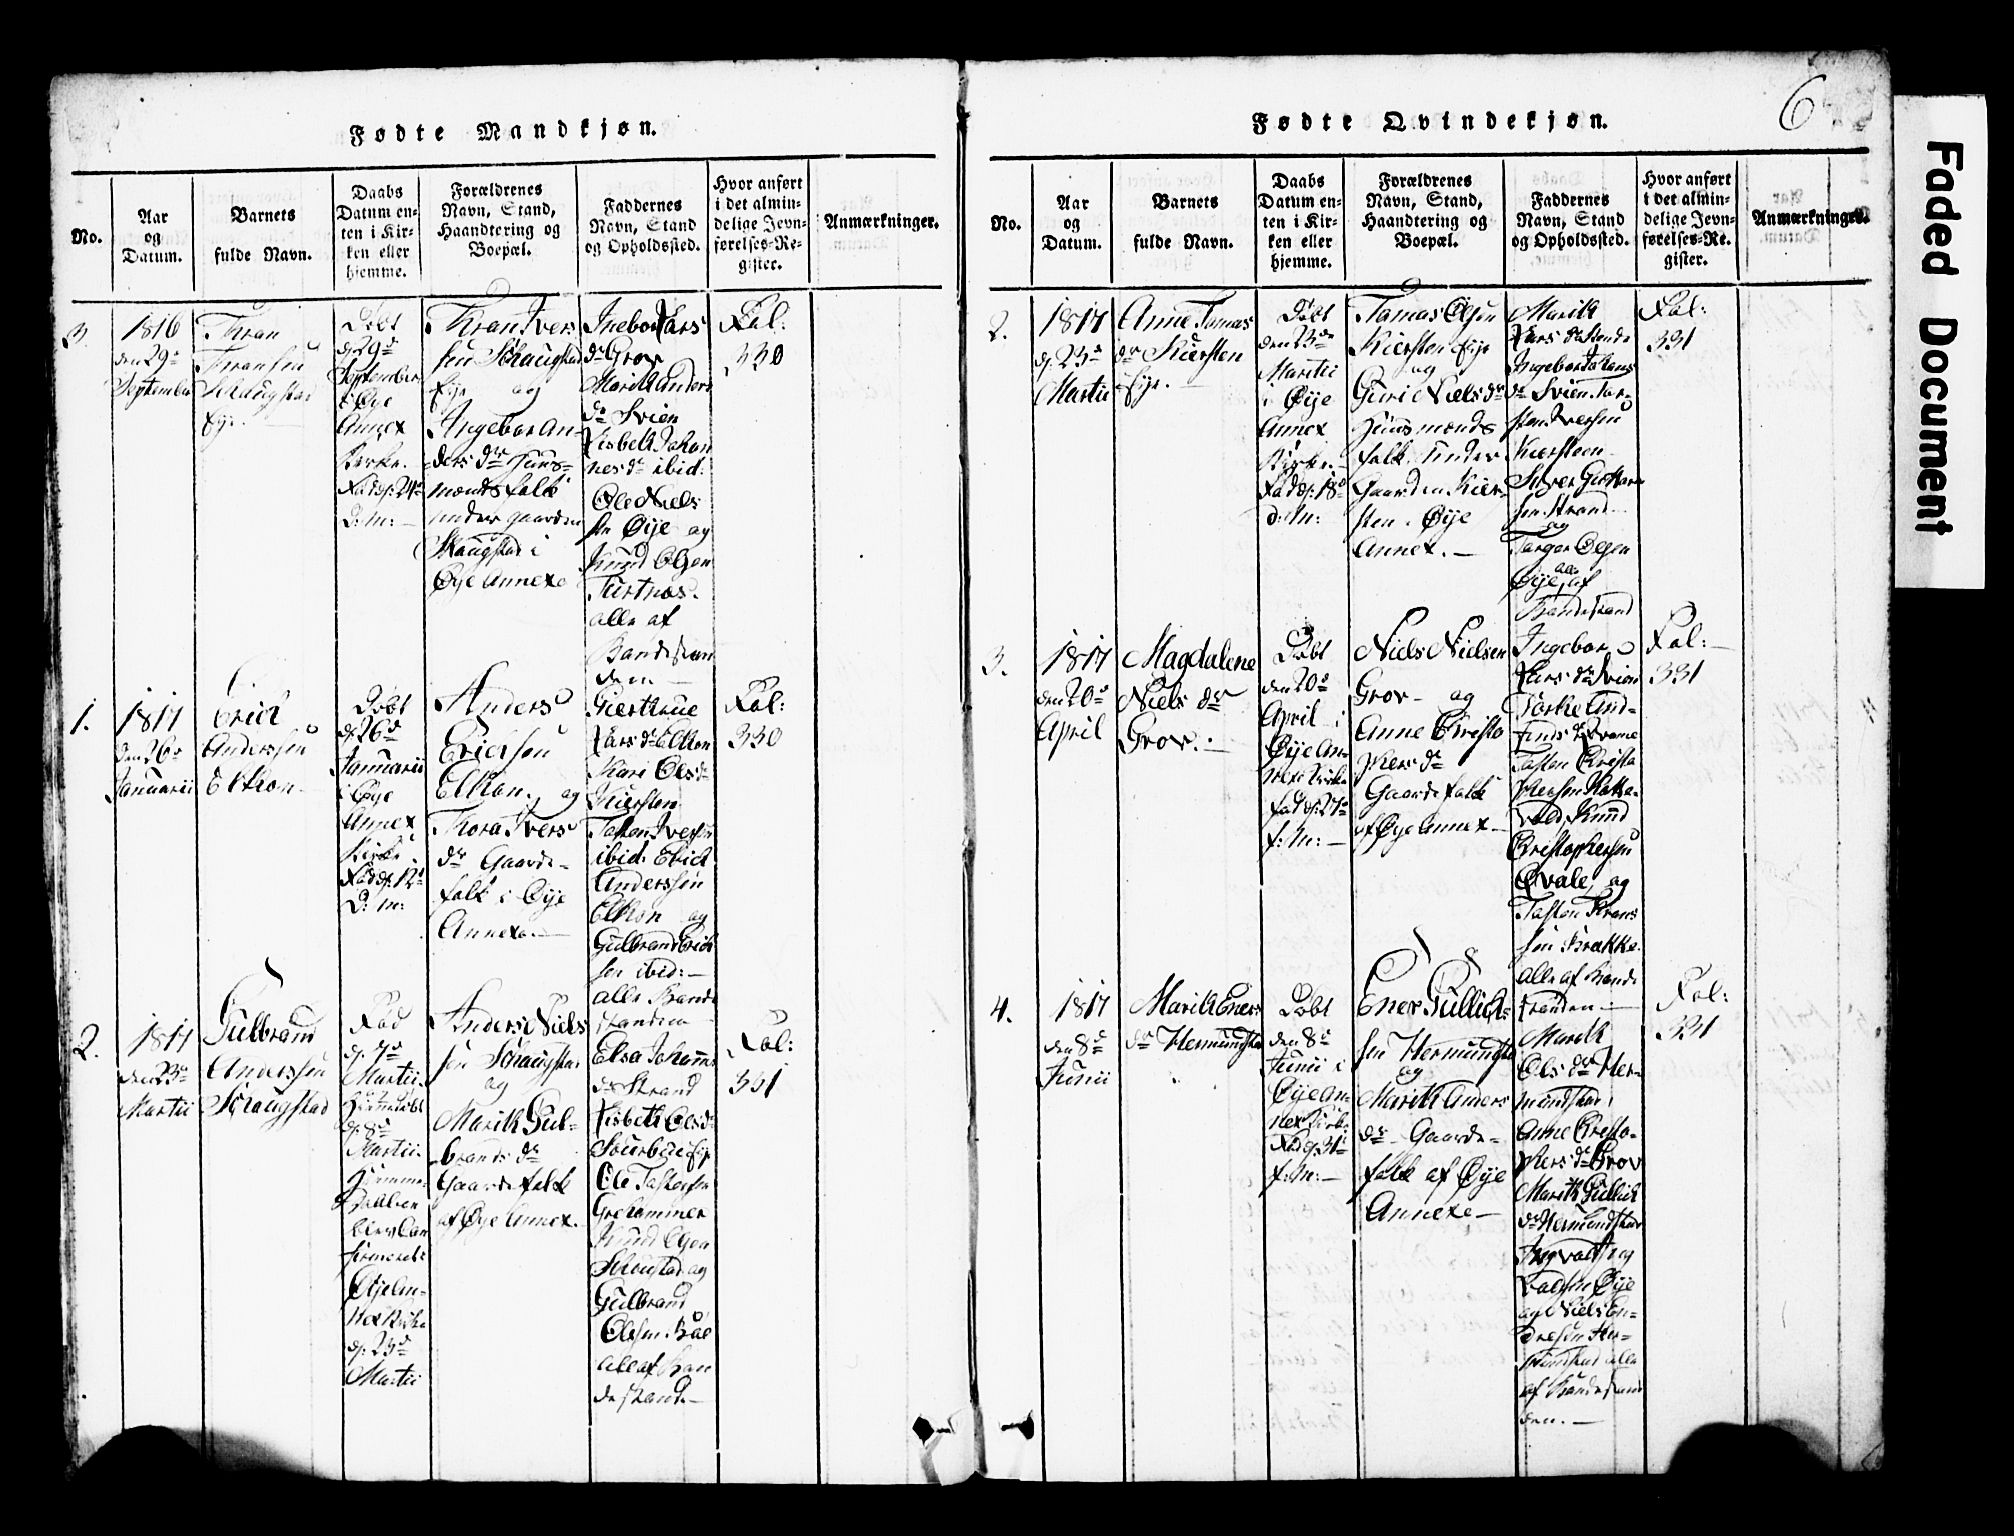 Fødte Mandkjøn.
No.
Aar
og
Datum.
Barnets
fulde Navn.
Daabs
Datum en-
ten i Kir-
ken eller
hjemme.
Forældrenes
Navn, Stand,
Haandtering og
Boepæl.
Faddernes
Navn, Stand
og Opholdssted.
Hvor anført
i det almin-
delige Jevn-
førelses-Re-
gister.
Anmærkninger.
3.
1816
den 29de
September
Thran
Transen
Schaugstad
Eje.
Døbt
d: 29de
September
i Øye
Annex
Kirke.
Fød d: 24de
d: M:
Thran Ivers
sen Schaugstad
Eje og
Ingebor An-
ders dr Huus-
mands folk
under gaarden
Skaugstad i
Øye Annexe
Ingebor Lars
dr Grov
Marith Anders
dr Svien
Lisbeth Johan
nes dr ibid:
Ole Niels
sen Øye og
Knud Olsen
Turtnæs.
alle af
Bondestan
den
Fol:
330
1.
1817
den 26de
Januarii
Erich
Anderssen
Elthon
Døbt
d: 26de
Januarii
i Øye
Annex
Kirke
Fød d: 12te
d: m:
Anders
Erichsen
Elthon og
Thora Ivers
dr Gaard-
folk i Øye
Annexe.
Giertrue
Lars dr Elthon
Kari Ols dr
Kiersten
Tosten Iversen
ibid: Erich
Anderssen
Elthon og
Gulbrand Erich
sen ibid:
alle Bonde
standen
Fol:
330
2.
1817
den 23de
Martii
Gulbrand
Anderssen
Schaugstad
Fød
d: 7de
Martii.
Hjemmedøbt
d: 8de
Martii.
Hjemme-
Daaben
blev Con
firmeret i
Øye An-
nex Kirke
d: 23de
Martii
Anders Niels
sen Schaugstad
og
Marith Gul-
brands dr
Gaardefolk
af Øye Annex.
Elsa Johannes
dr Strand
Lisbeth Ols dr
Sourbøe Eje
Ole Tostensen
Knud Olsen
Schaustad og
Gulbrand
Olesen Bøe
alle af Bon
destand.
Fol:
331
6
Fødte Qvindekjøn.
No.
Aar
og
Datum.
Barnets
fulde Navn.
Daabs
Datum en-
ten i Kir-
ken eller
hjemme.
Forældrenes
Navn, Stand,
Haandtering og
Boepæl.
Faddernes
Navn, Stand
og Opholdssted.
Hvor anført
i det almin-
delige Jevn-
førelses-Re-
gister.
Anmærkninger.
2.
1817
d: 23de
Martii
Anne Tomas
dr Kiersten
Eje.
Døbt
den 23de
Martii
i Øye
Annex
Kirke.
Fød d: 18de
d: M:
Tomas Olsen
Kiersten Eje
og
Guri Niels dr
Huusmands
folk under
Gaarden Kier-
sten. Øye
Annex.
Marith
Lars dr
Ingebor Johans
dr Svien. Tor-
sten Iversen
Kiersteen
Siver Guttorm
sen Strand
og
Torger Olsen
Øye, alle af
Bondestand
Fol:
331
3.
1817
den 20de
April
Magdalene
Niels dr
Grov.
Døbt
den 20de
April i
Øye An-
nexe Kirke
fød d: 27de
f: M:
Niels Nielsen
Grov og
Anne Christo
phers dr
Gaardefolk
af Øye Annex
Ingebor
Lars dr Svien
Tosten Christo
phersen
Knud
Christophersen
Qvale, og
Tosten Thrans
sen Brække
alle af Bonde
standen
Fol:
331
4.
1817
den 8de
Junii
Marith Eners
dr Hermundstad
Døbt
den 8de
Junii i
Øye An-
nex Kirke.
Fød d: 31te
f: M:
Ener Gullich-
sen Hermundstad
og
Marith Anders
dr Gaarde-
folk af Øye
Annexe
Marith
Ols dr Her-
mundstad,
Anne Christo-
phers dr Grov
Marith Gullich
dr Hermundstad
Øye
og Niels En-
dresen Her-
mundstad alle
af Bondestan
den.
Fol:
331
Faded Document